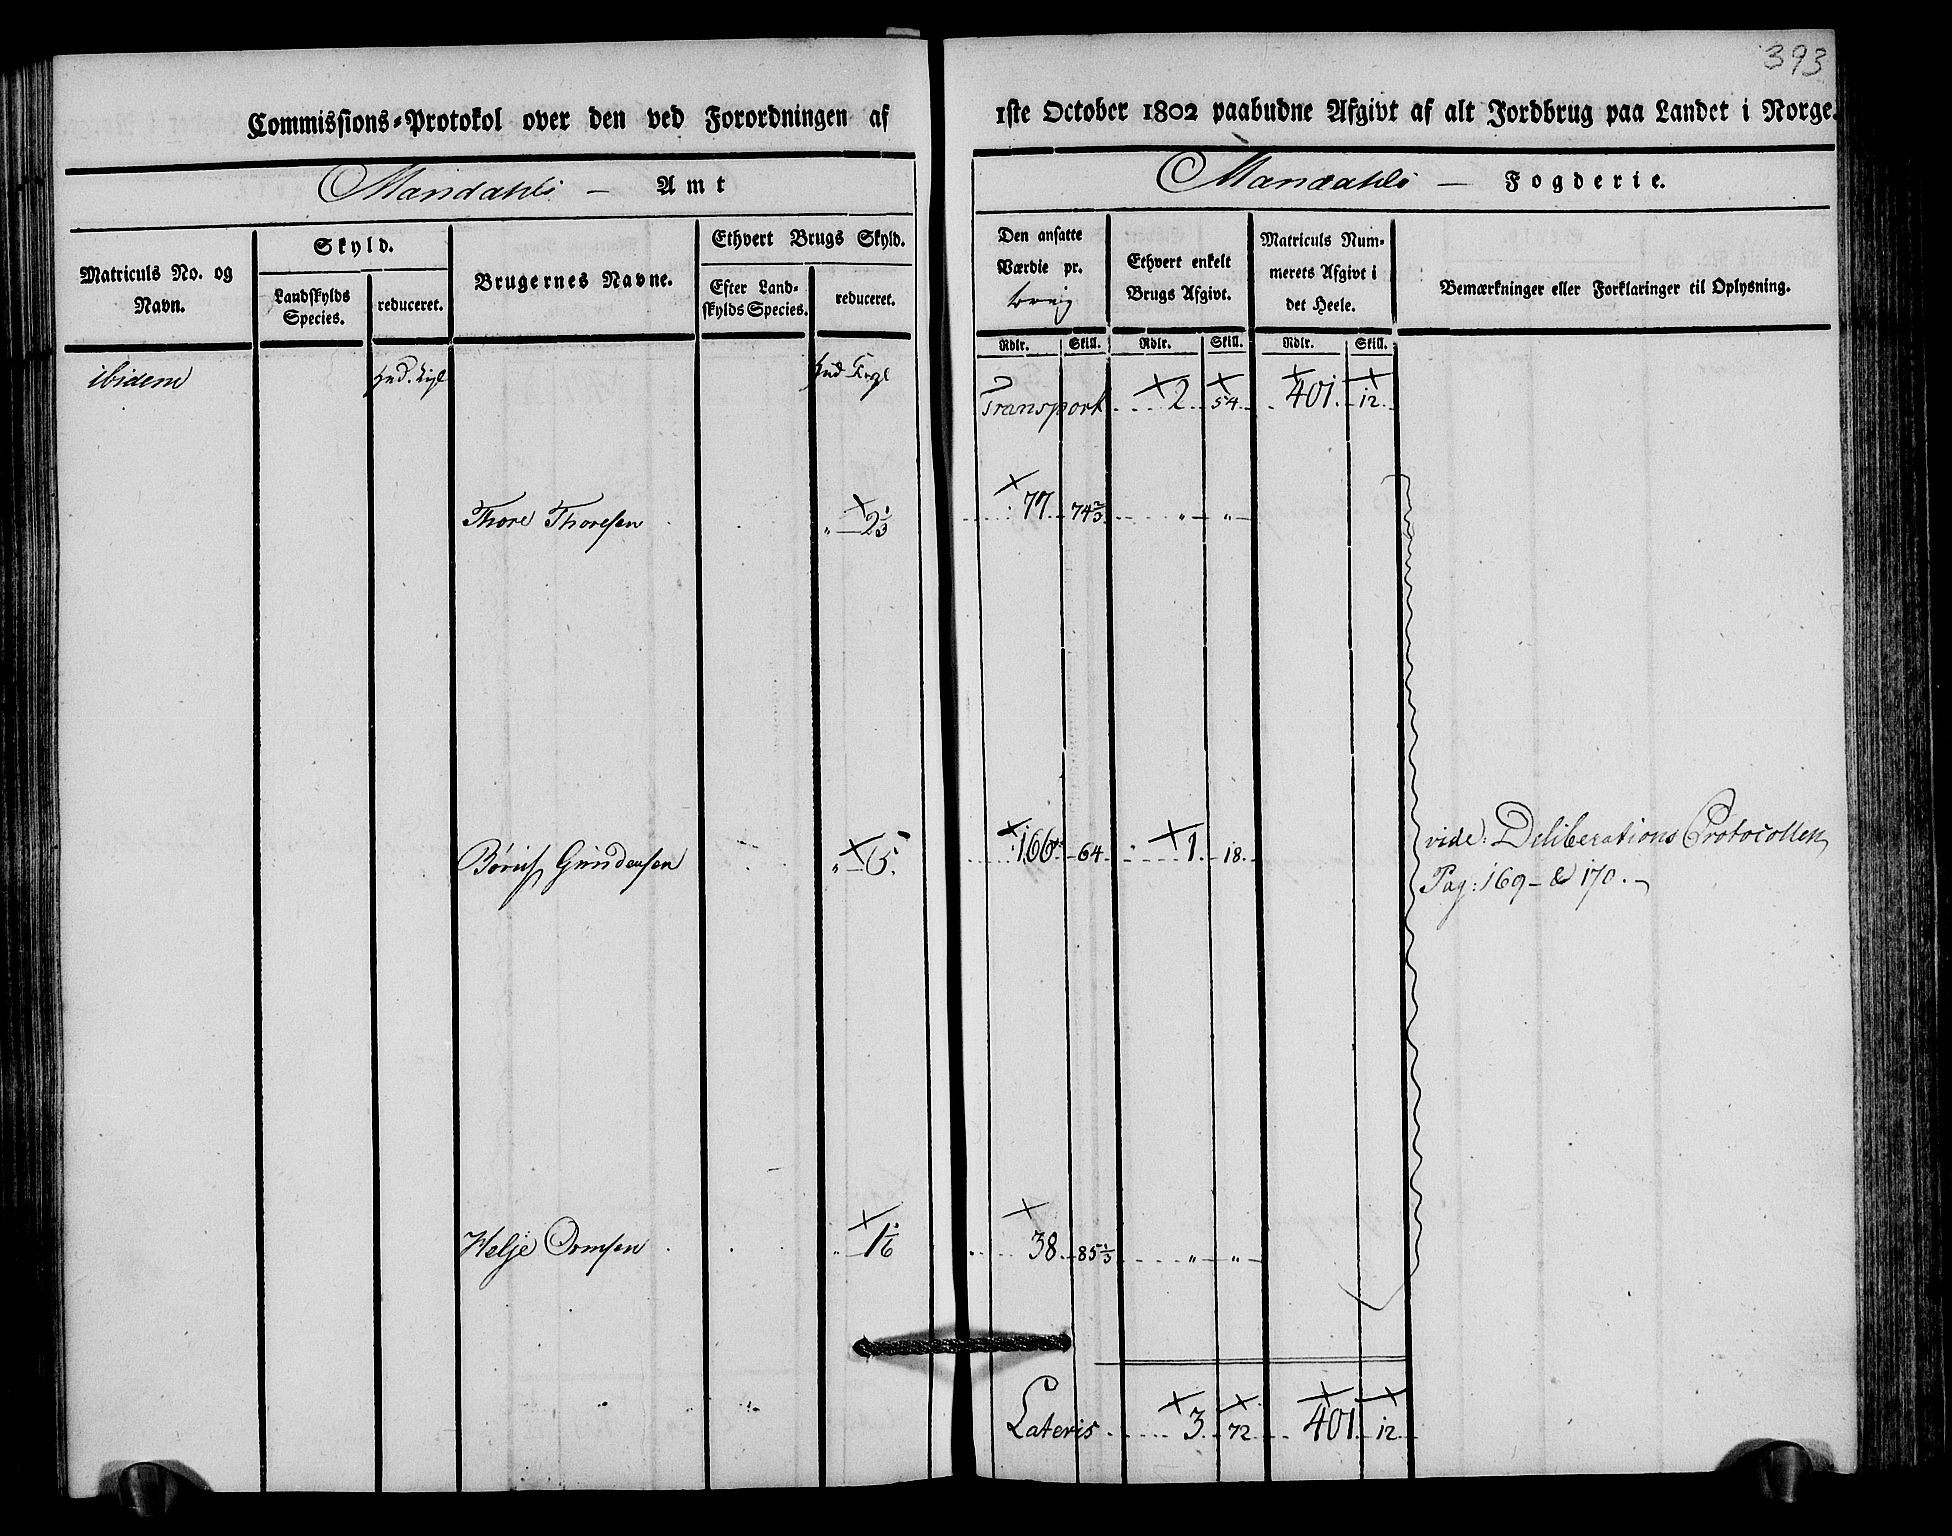 393
Commissions-Protokol over den ved Forordningen af 1ste October 1802 paabudne Afgivt af alt Jordbrug paa Landet i Norge.
Mandahls — Amt
Mandahls — Fogderie.
Matriculs No. og Navn.
Skyld.
Landskylds Species.
reduceret.
Brugernes Navne.
Ethvert Brugs Skyld.
Efter Landskylds Species.
reduceret.
Den ansatte Værdie pr.
Ethvert enkelt Brugs Afgivt.
Matriculs Nummerets Afgivt i det Heele.
Bemærkninger eller Forklaringer til Oplysning.
Rdlr. Skill. Rdlr. Skill. Rdlr. Skill.
ibidem
Transport 2 54 401 12
Thore Thoresen " 2 1/3 77 74 2/3 " "
Gundersen " 5 166 64 1 18
vide: Deliberations Protocollen
Pag: 169 — & 170. —
Helje Ormsen " 1 1/6 38 85 1/3 " "
Lateris 3 72 401 12